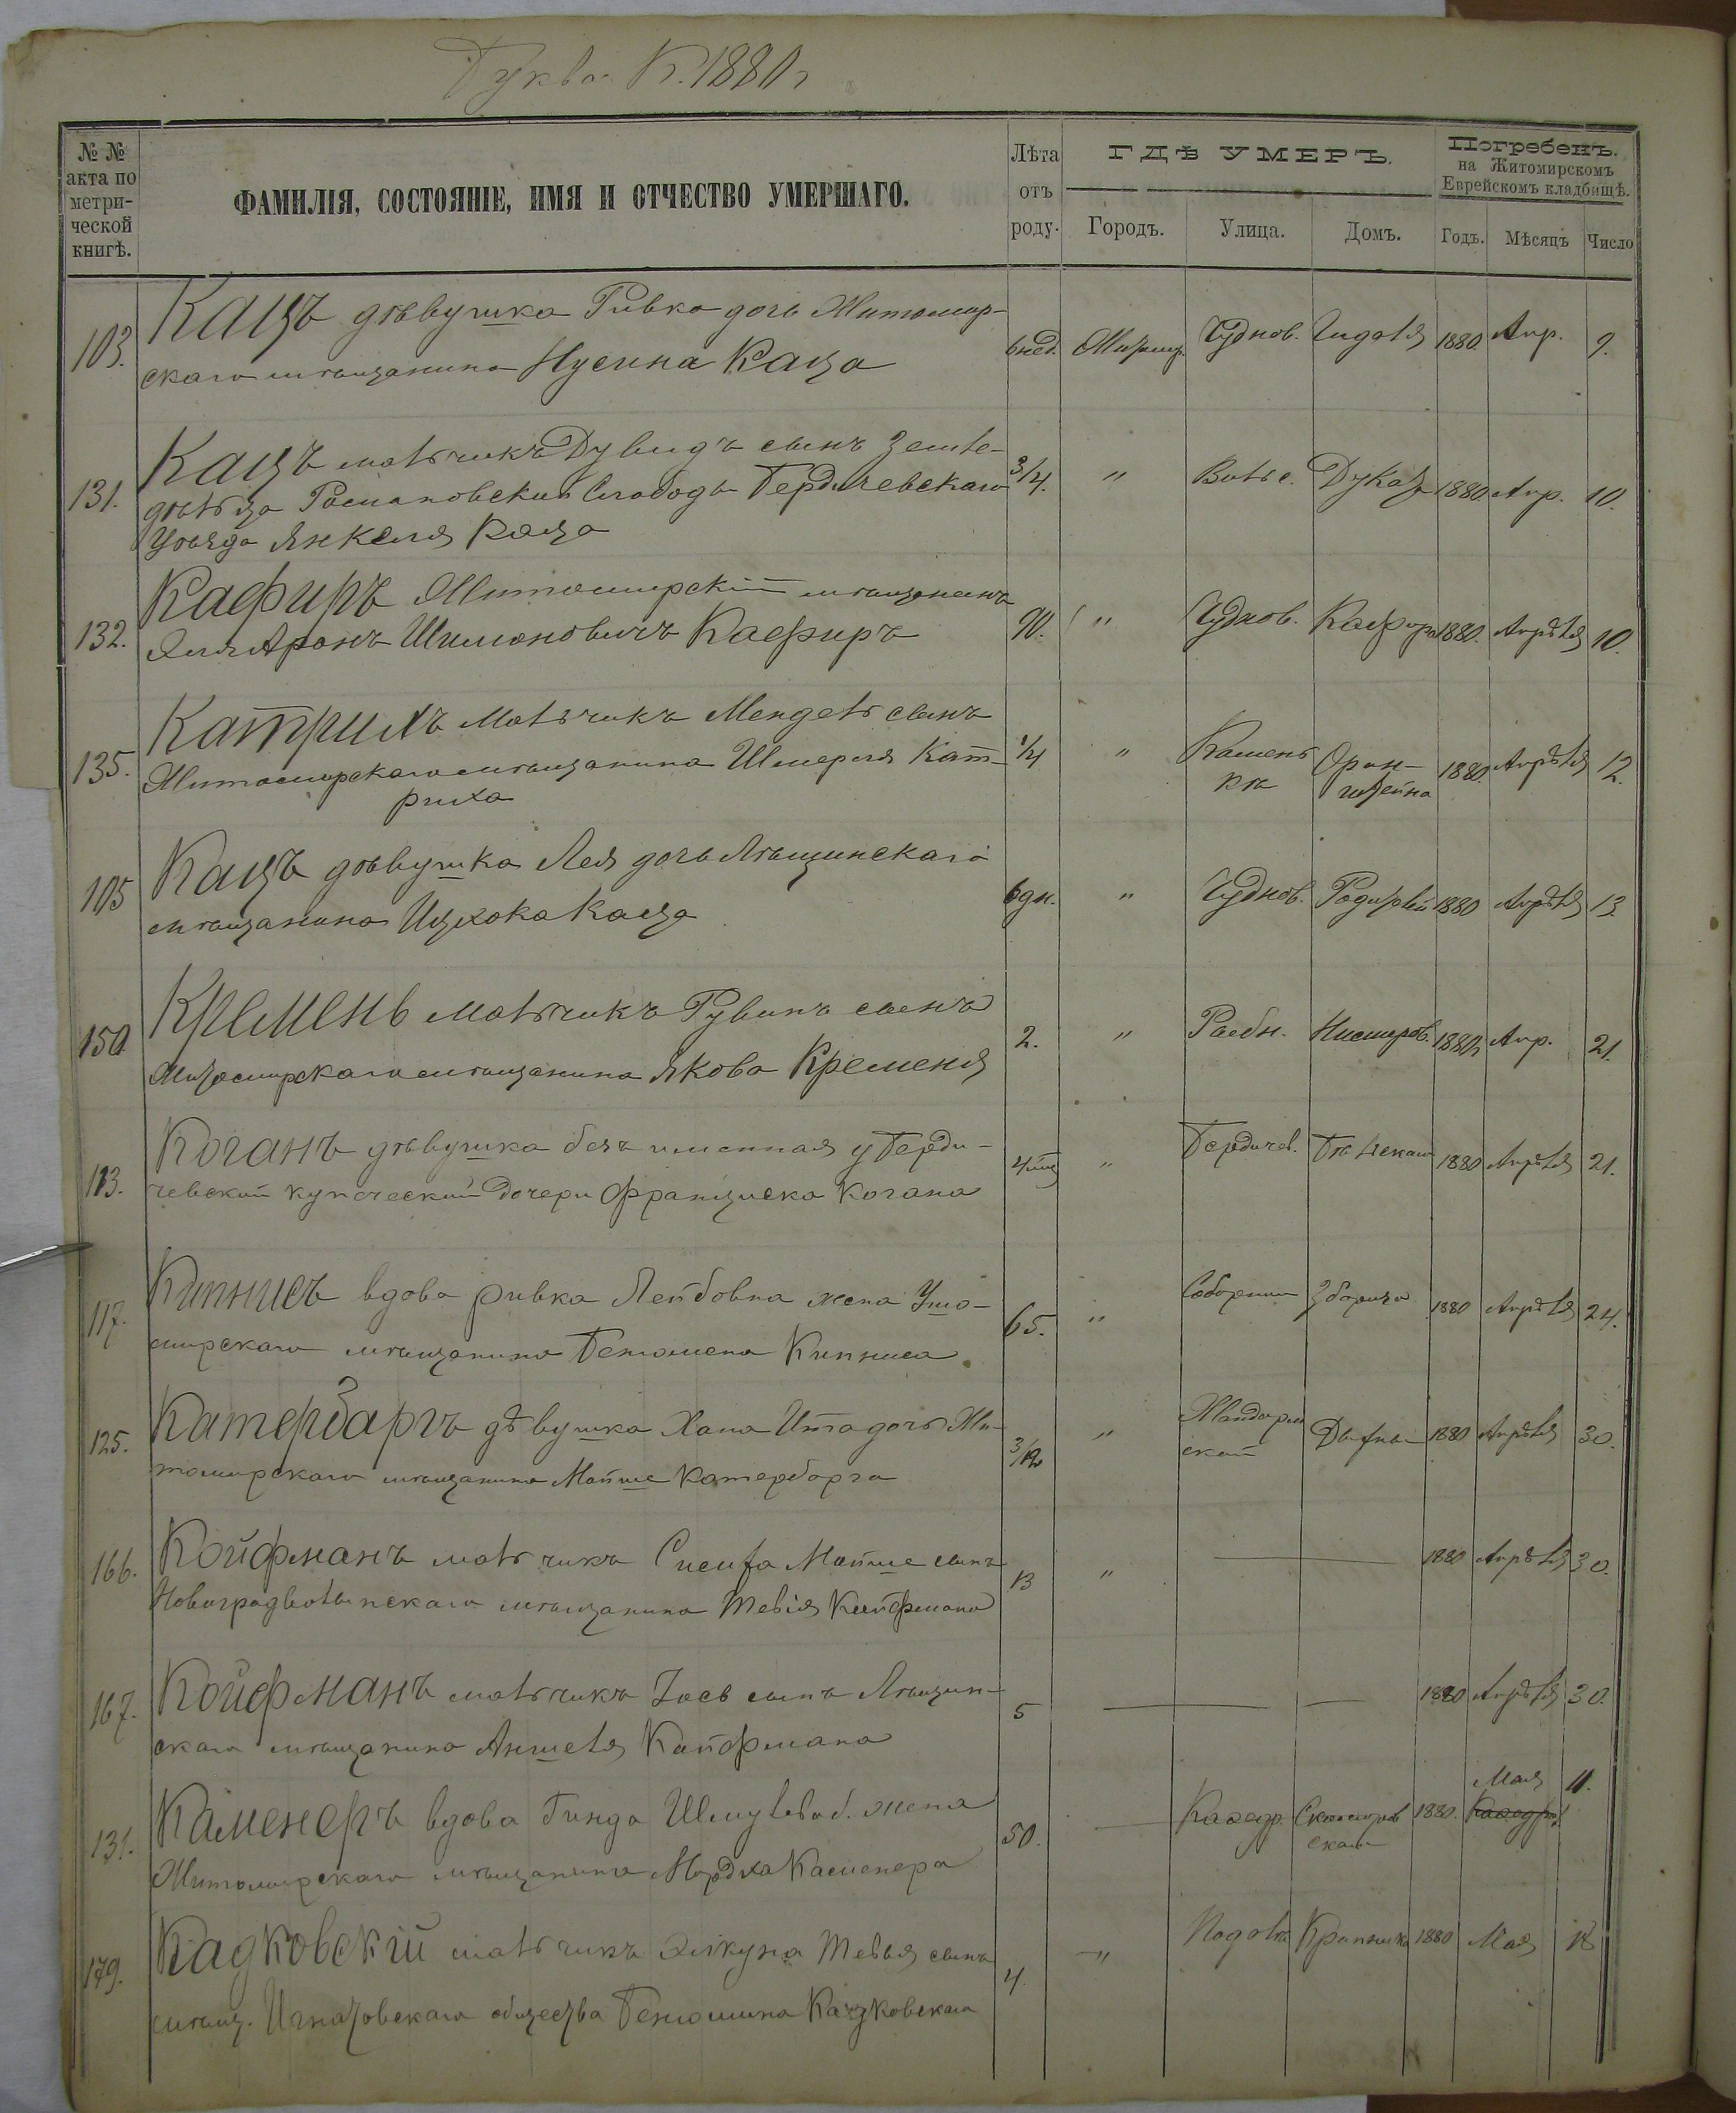 Буква К. 1880 г
№ №
акта по
метри-
ческой
книгѣ.
ФАМИЛІЯ, СОСТОЯНІЕ, ИМЯ И ОТЧЕСТВО УМЕРШАГО.
Лѣта
отъ
роду.
ГДѢ УМЕРЪ.
Городъ.
Улица.
Домъ.
Погребенъ.
на Житомирскомъ
Еврейскомъ кладбищѣ.
Годъ.
Мѣсяцъ
Число
103. Кацъ дѣвушка Ривка дочь Житомир-
скаго мѣщанина Нусина Каца
6 нед. Житомир. Чуднов. 1880 Апр. 9.
131. Кацъ мальчикъ Дувидъ сынъ Земле-
дѣльца Романовский Слободы Бердичевскаго
Уѣзда Янкеля Каца
3/4. " Вильс. 1880 Апр. 10.
132. Кафиръ Житомирскій мѣщанинъ
Аронъ Шимоновичъ Кафиръ
90. " Чуднов. Кафира 1880. Апрѣля 10.
135. Катрихъ мальчикъ Мендель сынъ
Житомирскаго мѣщанина Шмерля Кат-
риха
1/4 " 1880. Апрѣля 12.
105 Кацъ дѣвушка Лея дочь Лѣщинскаго
мѣщанина Ицхока Каца
6 дн. " Чуднов. 1880 Апрѣля 13
150 Кремень мальчикъ Рувинъ сынъ
Житомирскаго мѣщанина Якова Кременя
2. " 1880 Апр. 21.
113. Коганъ дѣвушка безъ именная у Берди-
чевский купеческий дочери Франциска Когана
" Бердичев. 1880 Апрѣля 21.
117. Кипнисъ вдова Ривка Лейбовна жена Ушо-
мирскаго мѣщанина Кипниса.
65. " 1880 Апрѣля 24.
125. Катербаргъ дѣвушка Хана Ита дочь Жи-
томирскаго мѣщанина Мойше Катерборга
3/12 " 1880 Апрѣля 30.
166. Койфманъ мальчикъ Мойше сынъ
Новоградволынскаго мѣщанина Тевія Койфмана
13 " 1880 Апрѣля 30.
167. Койфманъ мальчикъ сынъ Лѣщин-
скаго мѣщанина Аншеля Койфмана
5 1880 Апрѣля 30.
131. Каменеръ вдова Гинда Шмулевов. жена
Житомирскаго мѣщанина Мордха Каменера
50. 1880. Мая 11.
179. Кадковскій мальчикъ Тевья сынъ
мѣщ. Игнатовскаго общества
4. " Крапника 1880 Мая 18